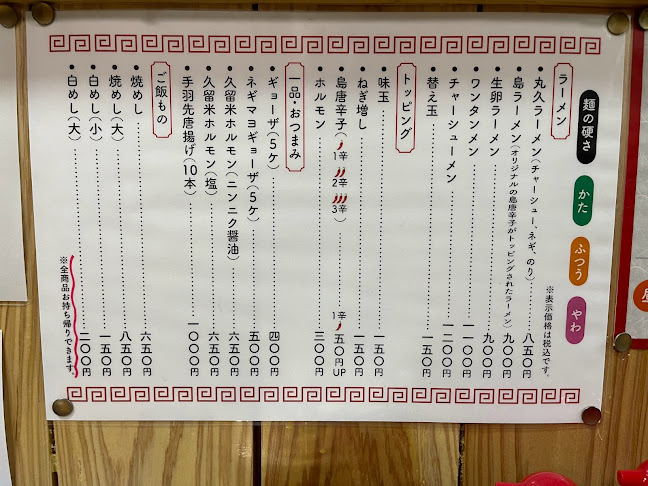 麺の硬さ
かた
ふつう
やわ
※表示価格は税込です。
ラーメン
●丸久ラーメン（チャーシュー、ネギ、のり）……八五〇円
●島ラーメン（オリジナルの島唐辛子がトッピングされたラーメン）……九〇〇円
●生卵ラーメン……九〇〇円
●ワンタンメン……一一〇〇円
●チャーシューメン……一二〇〇円
●替え玉……一五〇円
トッピング
●味玉……一五〇円
●ねぎ増し……一五〇円
●島唐辛子（1辛 2辛 3辛）……1辛 五〇円UP
●ホルモン……三〇〇円
一品・おつまみ
●ギョーザ（5ケ）……四〇〇円
●ネギマヨギョーザ（5ケ）……五〇〇円
●久留米ホルモン（ニンニク醤油）……六五〇円
●久留米ホルモン（塩）……六五〇円
●手羽先唐揚げ（10本）……一〇〇〇円
ご飯もの
●焼めし……六五〇円
●焼めし（大）……八五〇円
●白めし（小）……一五〇円
●白めし（大）……二〇〇円
※全商品お持ち帰りできます。